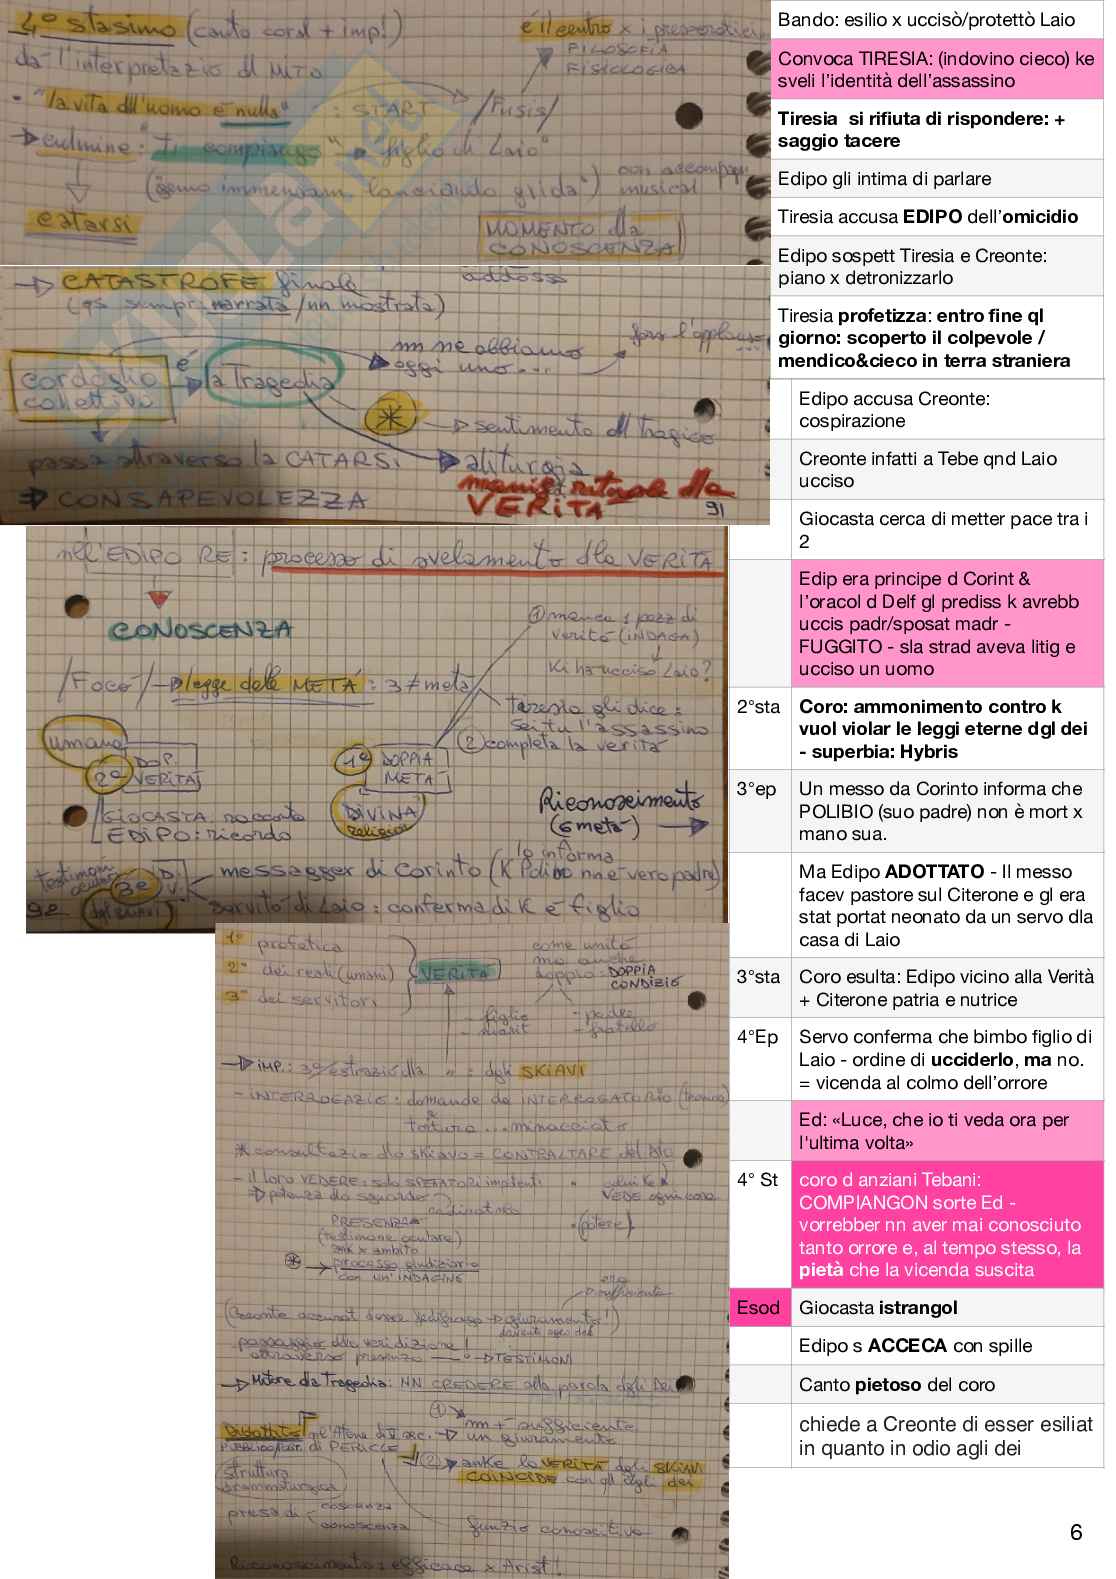 4° stasimo (canto coral + imp!)
è il centro x i presocratici
FILOSOFIA
FISIOLOGICA
da l'interpretazio d MITO
"la vita dll'uomo è nulla" : START
/Fusis/
culmine: "Ti compiango" figlio di Laio"
("gemo immensam lanciando grida") con accompagn
musical
catarsi
MOMENTO dla
CONOSCENZA
CATASTROFE finale
addosso
(qs sempr narrata / nn mostrata)
nn ne abbiamo
oggi uno...
fare l'applauso
cordoglio
collettivo
è
la Tragedia
sentimento dl tragico
passa attraverso la CATARSI
aliturgia
manif rituale dla
VERITÀ
CONSAPEVOLEZZA
91
nell'EDIPO RE: processo di svelamento dla VERITÀ
CONOSCENZA
① manca 1 pezz di
verità (INDAGA)
Ki ha ucciso Laio?
/Foco/ legge delle METÀ: 3 ≠ metà
Tiresia gli dice:
sei tu l'assassino
② completa la verità
umana
2a DOP. VERITÀ
1a DOPPIA
METÀ
DIVINA
religiosa
GIOCASTA: racconto
EDIPO: ricordo
Riconoscimento
(6 metà)
lo informa
testimoni
oculari
3a
messagger di Corinto (K Polibo nn è vero padre)
servito di Laio: conferma di K è figlio
92
1° profetica
2° dei reali (umani)
3° dei servitori
VERITÀ
come unità
ma anche
doppia: DOPPIA
CONDIZIO
- figlio
- marit
- padre
- fratello
IMP.: 3° estrazio dlla " : dgli SKIAVI
- INTERROGAZIO: domande da INTERROGATORIO
tortura ... minacciato
* consultazio dlo skiavo = CONTRALTARE del Dio
- il loro VEDERE: solo SPETATORI impotenti
VEDE ogni cosa
potenza do sguardo
ordinatore
PRESENZA
(testimone oculare)
(potere)
ank x ambito
processo giudiziario
con un'INDAGINE
era
sufficiente
passaggio dla veridizione
attraverso presenza
TESTIMONI
Motore dla Tragedia: NN CREDERE alla parola dgli Dei
① nn + sufficiente
un giuramento
nll'Atene di V sec.
di PERICLE
② anke la VERITÀ degli SKIAVI
COINCIDE con qll degli dei
struttura
drammaturgica
presa di
coscienza
conoscenza
funzio conoscitiva
Riconoscimento: efficace x Arist!
Bando: esilio x uccisò/protettò Laio
Convoca TIRESIA: (indovino cieco) ke
sveli l'identità dell'assassino
Tiresia si rifiuta di rispondere: +
saggio tacere
Edipo gli intima di parlare
Tiresia accusa EDIPO dell'omicidio
Edipo sospett Tiresia e Creonte:
piano x detronizzarlo
Tiresia profetizza: entro fine ql
giorno: scoperto il colpevole /
mendico&cieco in terra straniera
Edipo accusa Creonte:
cospirazione
Creonte infatti a Tebe qnd Laio
ucciso
Giocasta cerca di metter pace tra i
2
Edip era principe d Corint &
l'oracol d Delf gl prediss k avrebb
uccis padr/sposat madr -
FUGGITO - sla strad aveva litig e
ucciso un uomo
2°sta
Coro: ammonimento contro k
vuol violar le leggi eterne dgl dei
- superbia: Hybris
3°ep
Un messo da Corinto informa che
POLIBIO (suo padre) non è mort x
mano sua.
Ma Edipo ADOTTATO - Il messo
facev pastore sul Citerone e gl era
stat portat neonato da un servo dla
casa di Laio
3°sta
Coro esulta: Edipo vicino alla Verità
+ Citerone patria e nutrice
4°Ep
Servo conferma che bimbo figlio di
Laio - ordine di ucciderlo, ma no.
= vicenda al colmo dell'orrore
Ed: «Luce, che io ti veda ora per
l'ultima volta»
4° St
coro d anziani Tebani:
COMPIANGON sorte Ed -
vorrebber nn aver mai conosciuto
tanto orrore e, al tempo stesso, la
pietà che la vicenda suscita
Esod
Giocasta istrangol
Edipo s ACCECA con spille
Canto pietoso del coro
chiede a Creonte di esser esiliat
in quanto in odio agli dei
6